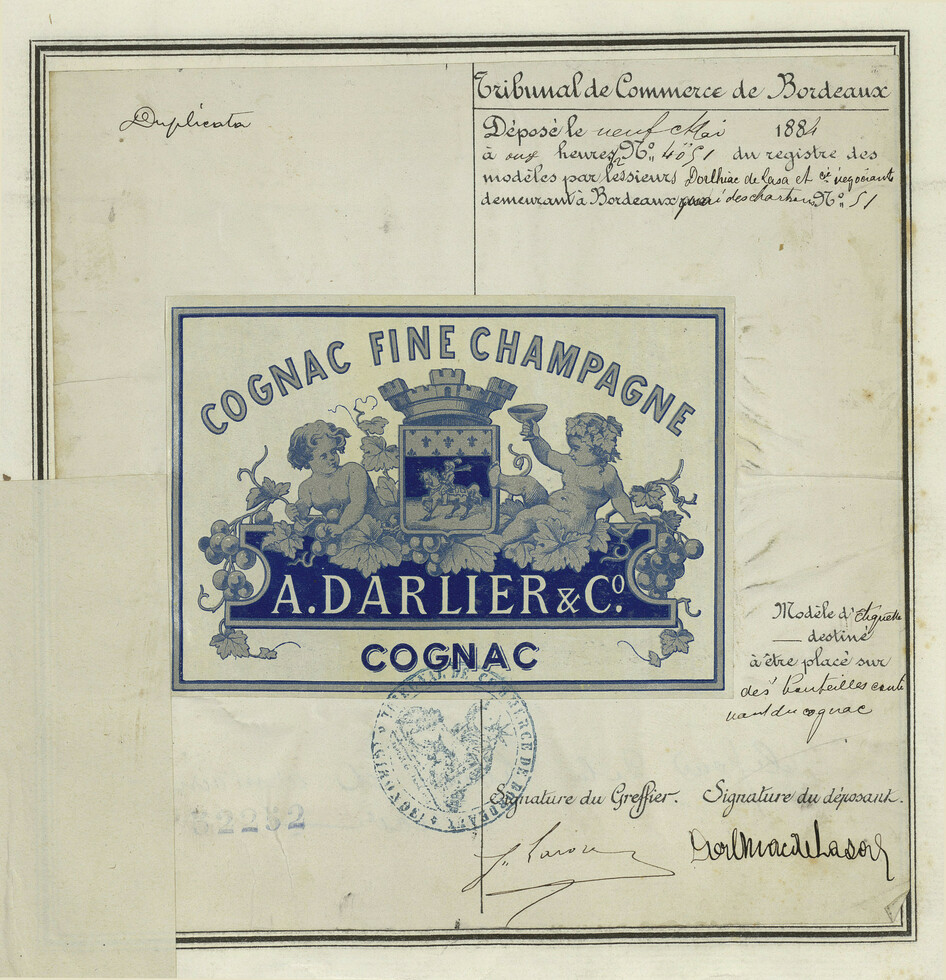 Duplicata
Tribunal de Commerce de Bordeaux
Déposé le neuf Mai 1884
à heures No 4051 du registre des
modèles par les sieurs Dorlhiac de Lasa et Cie négociants
demeurant à Bordeaux quai des chartrons No 51
COGNAC FINE CHAMPAGNE
A. DARLIER & Co.
COGNAC
Modèle d'étiquette
destiné
à être placé sur
des bouteilles conte
nant du cognac
TRIBUNAL DE COMMERCE DE BORDEAUX
Signature du Greffier. Signature du déposant.
Dorlhiac de Lasa